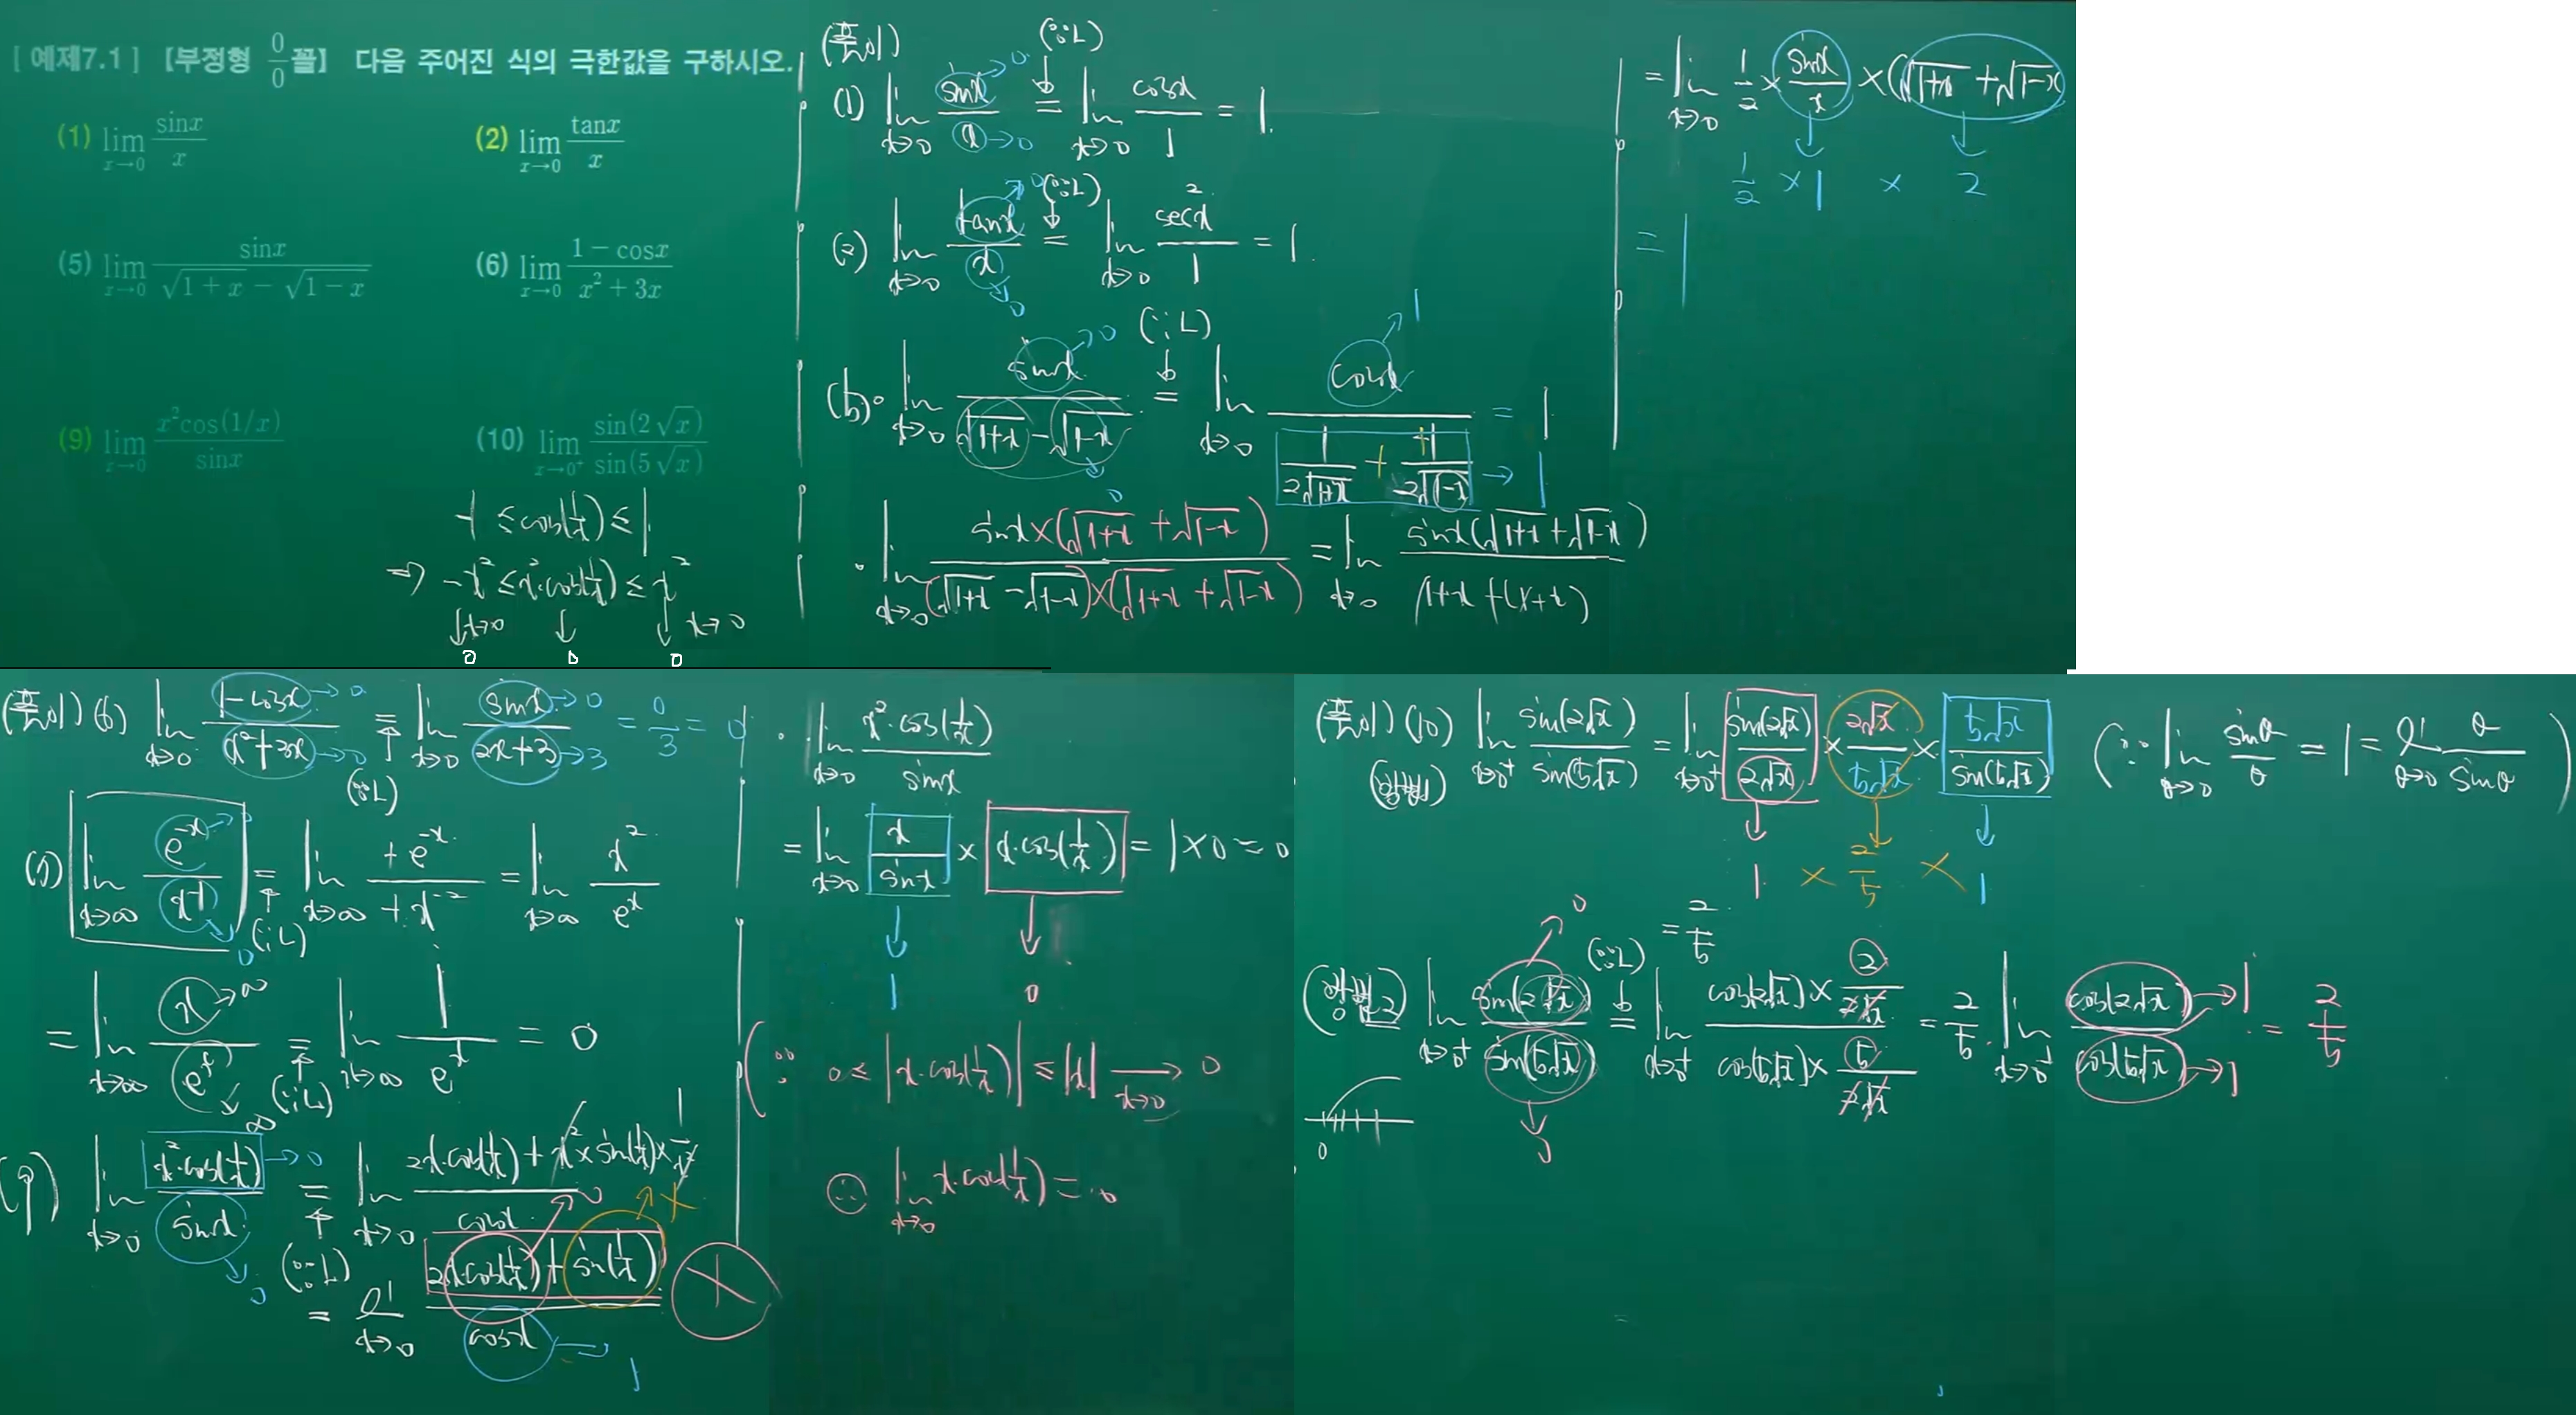 [ 예제7.1 ] [부정형 0/0 꼴] 다음 주어진 식의 극한값을 구하시오.
(1) lim_{x→0} sinx/x (2) lim_{x→0} tanx/x
(5) lim_{x→0} sinx/(√(1+x) − √(1−x)) (6) lim_{x→0} (1−cosx)/(x²+3x)
(9) lim_{x→0} x²cos(1/x)/sinx (10) lim_{x→0⁺} sin(2√x)/sin(5√x)
-1 ≤ cos(1/x) ≤ 1
⇒ -x² ≤ x²·cos(1/x) ≤ x²
↓x→0 ↓ ↓x→0
0 0 0
(풀이)
(1) lim_{x→0} sinx→0/x→0 = (∵L) lim_{x→0} cosx/1 = 1.
(2) lim_{x→0} tanx→0/x→0 = (∵L) lim_{x→0} sec²x/1 = 1.
(5)· lim_{x→0} sinx→0/(√(1+x) − √(1−x))→0 = (∵L) lim_{x→0} cosx→1/(1/(2√(1+x)) + +1/(2√(1−x)))→1 = 1
· lim_{x→0} sinx×(√(1+x) + √(1−x))/((√(1+x) − √(1−x))×(√(1+x) + √(1−x))) = lim_{x→0} sinx(√(1+x) + √(1−x))/(1+x−1+x)
= lim_{x→0} 1/2 × sinx/x × (√(1+x) + √(1−x))
1/2 × 1 × 2
= 1
(풀이) (6) lim_{x→0} (1−cosx)→0/(x²+3x)→0 = (∵L) lim_{x→0} sinx→0/(2x+3)→3 = 0/3 = 0
lim_{x→∞} e^{-x}→0/x^{-1}→0 = (∵L) lim_{x→∞} +e^{-x}/+x^{-2} = lim_{x→∞} x²/e^x
= lim_{x→∞} x→∞/e^x→∞ = (∵L) lim_{x→∞} 1/e^x = 0
(9) lim_{x→0} x²·cos(1/x)→0/sinx→0 = (∵L) lim_{x→0} (2x·cos(1/x) + x²×sin(1/x)×1/x²)/cosx
= lim_{x→0} (2x·cos(1/x)→0 + sin(1/x)→X)/cosx→1 X
· lim_{x→0} x²·cos(1/x)/sinx
= lim_{x→0} x/sinx × x·cos(1/x) = 1×0 = 0
↓ ↓
1 0
(∵ 0 ≤ |x·cos(1/x)| ≤ |x| →_{x→0} 0
∴ lim_{x→0} x·cos(1/x) = 0
(풀이) (10) lim_{x→0⁺} sin(2√x)/sin(5√x) = lim_{x→0⁺} sin(2√x)/2√x × 2√x/5√x × 5√x/sin(5√x) (∵ lim_{θ→0} sinθ/θ = 1 = lim_{θ→0} θ/sinθ)
(방법1)
1 × 2/5 × 1
= 2/5
(방법2) lim_{x→0⁺} sin(2√x)→0/sin(5√x)→0 = (∵L) lim_{x→0⁺} (cos(2√x)×2/(2√x))/(cos(5√x)×5/(2√x)) = 2/5 · lim_{x→0⁺} cos(2√x)→1/cos(5√x)→1 = 2/5
0